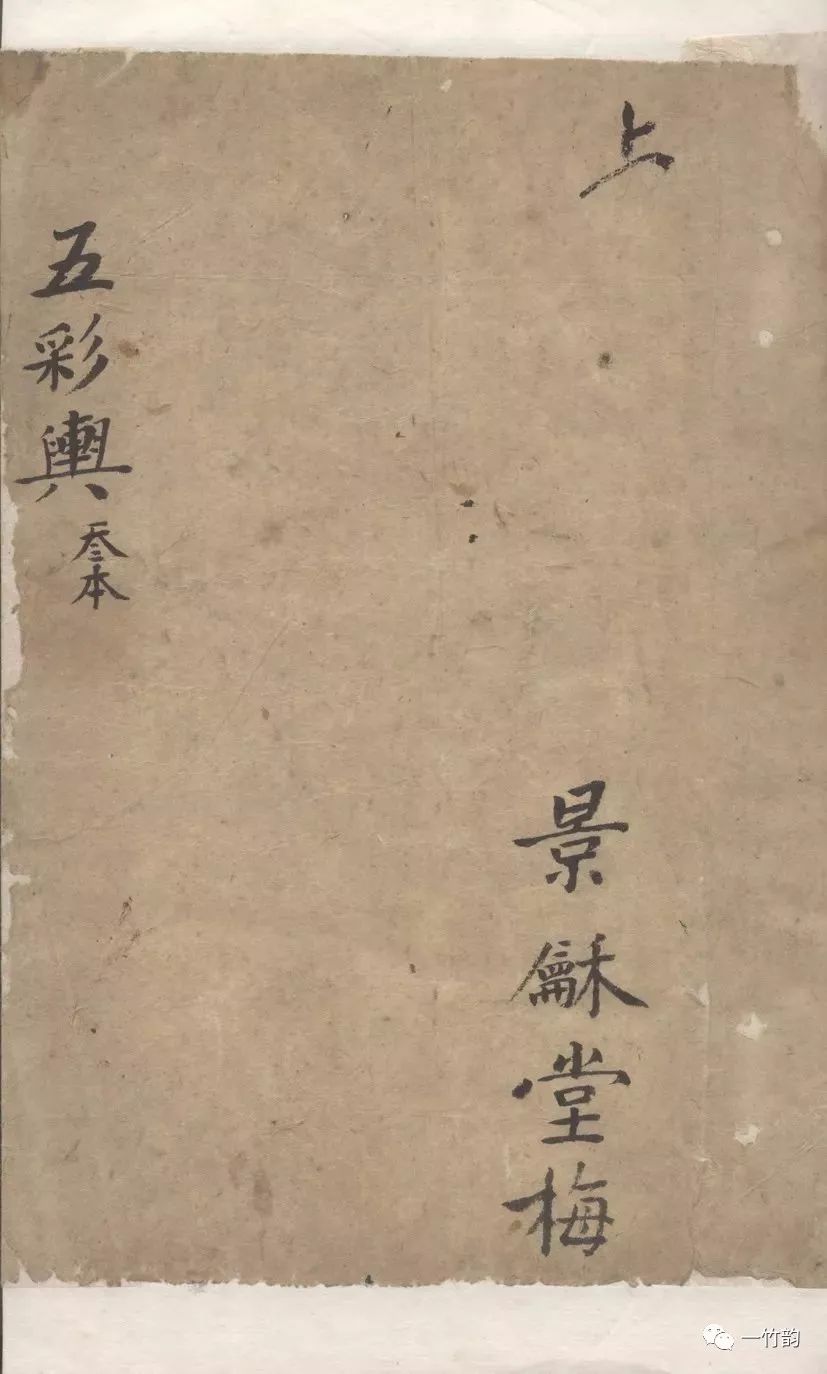 上
景龢堂梅
五彩輿
叁本
一竹韵